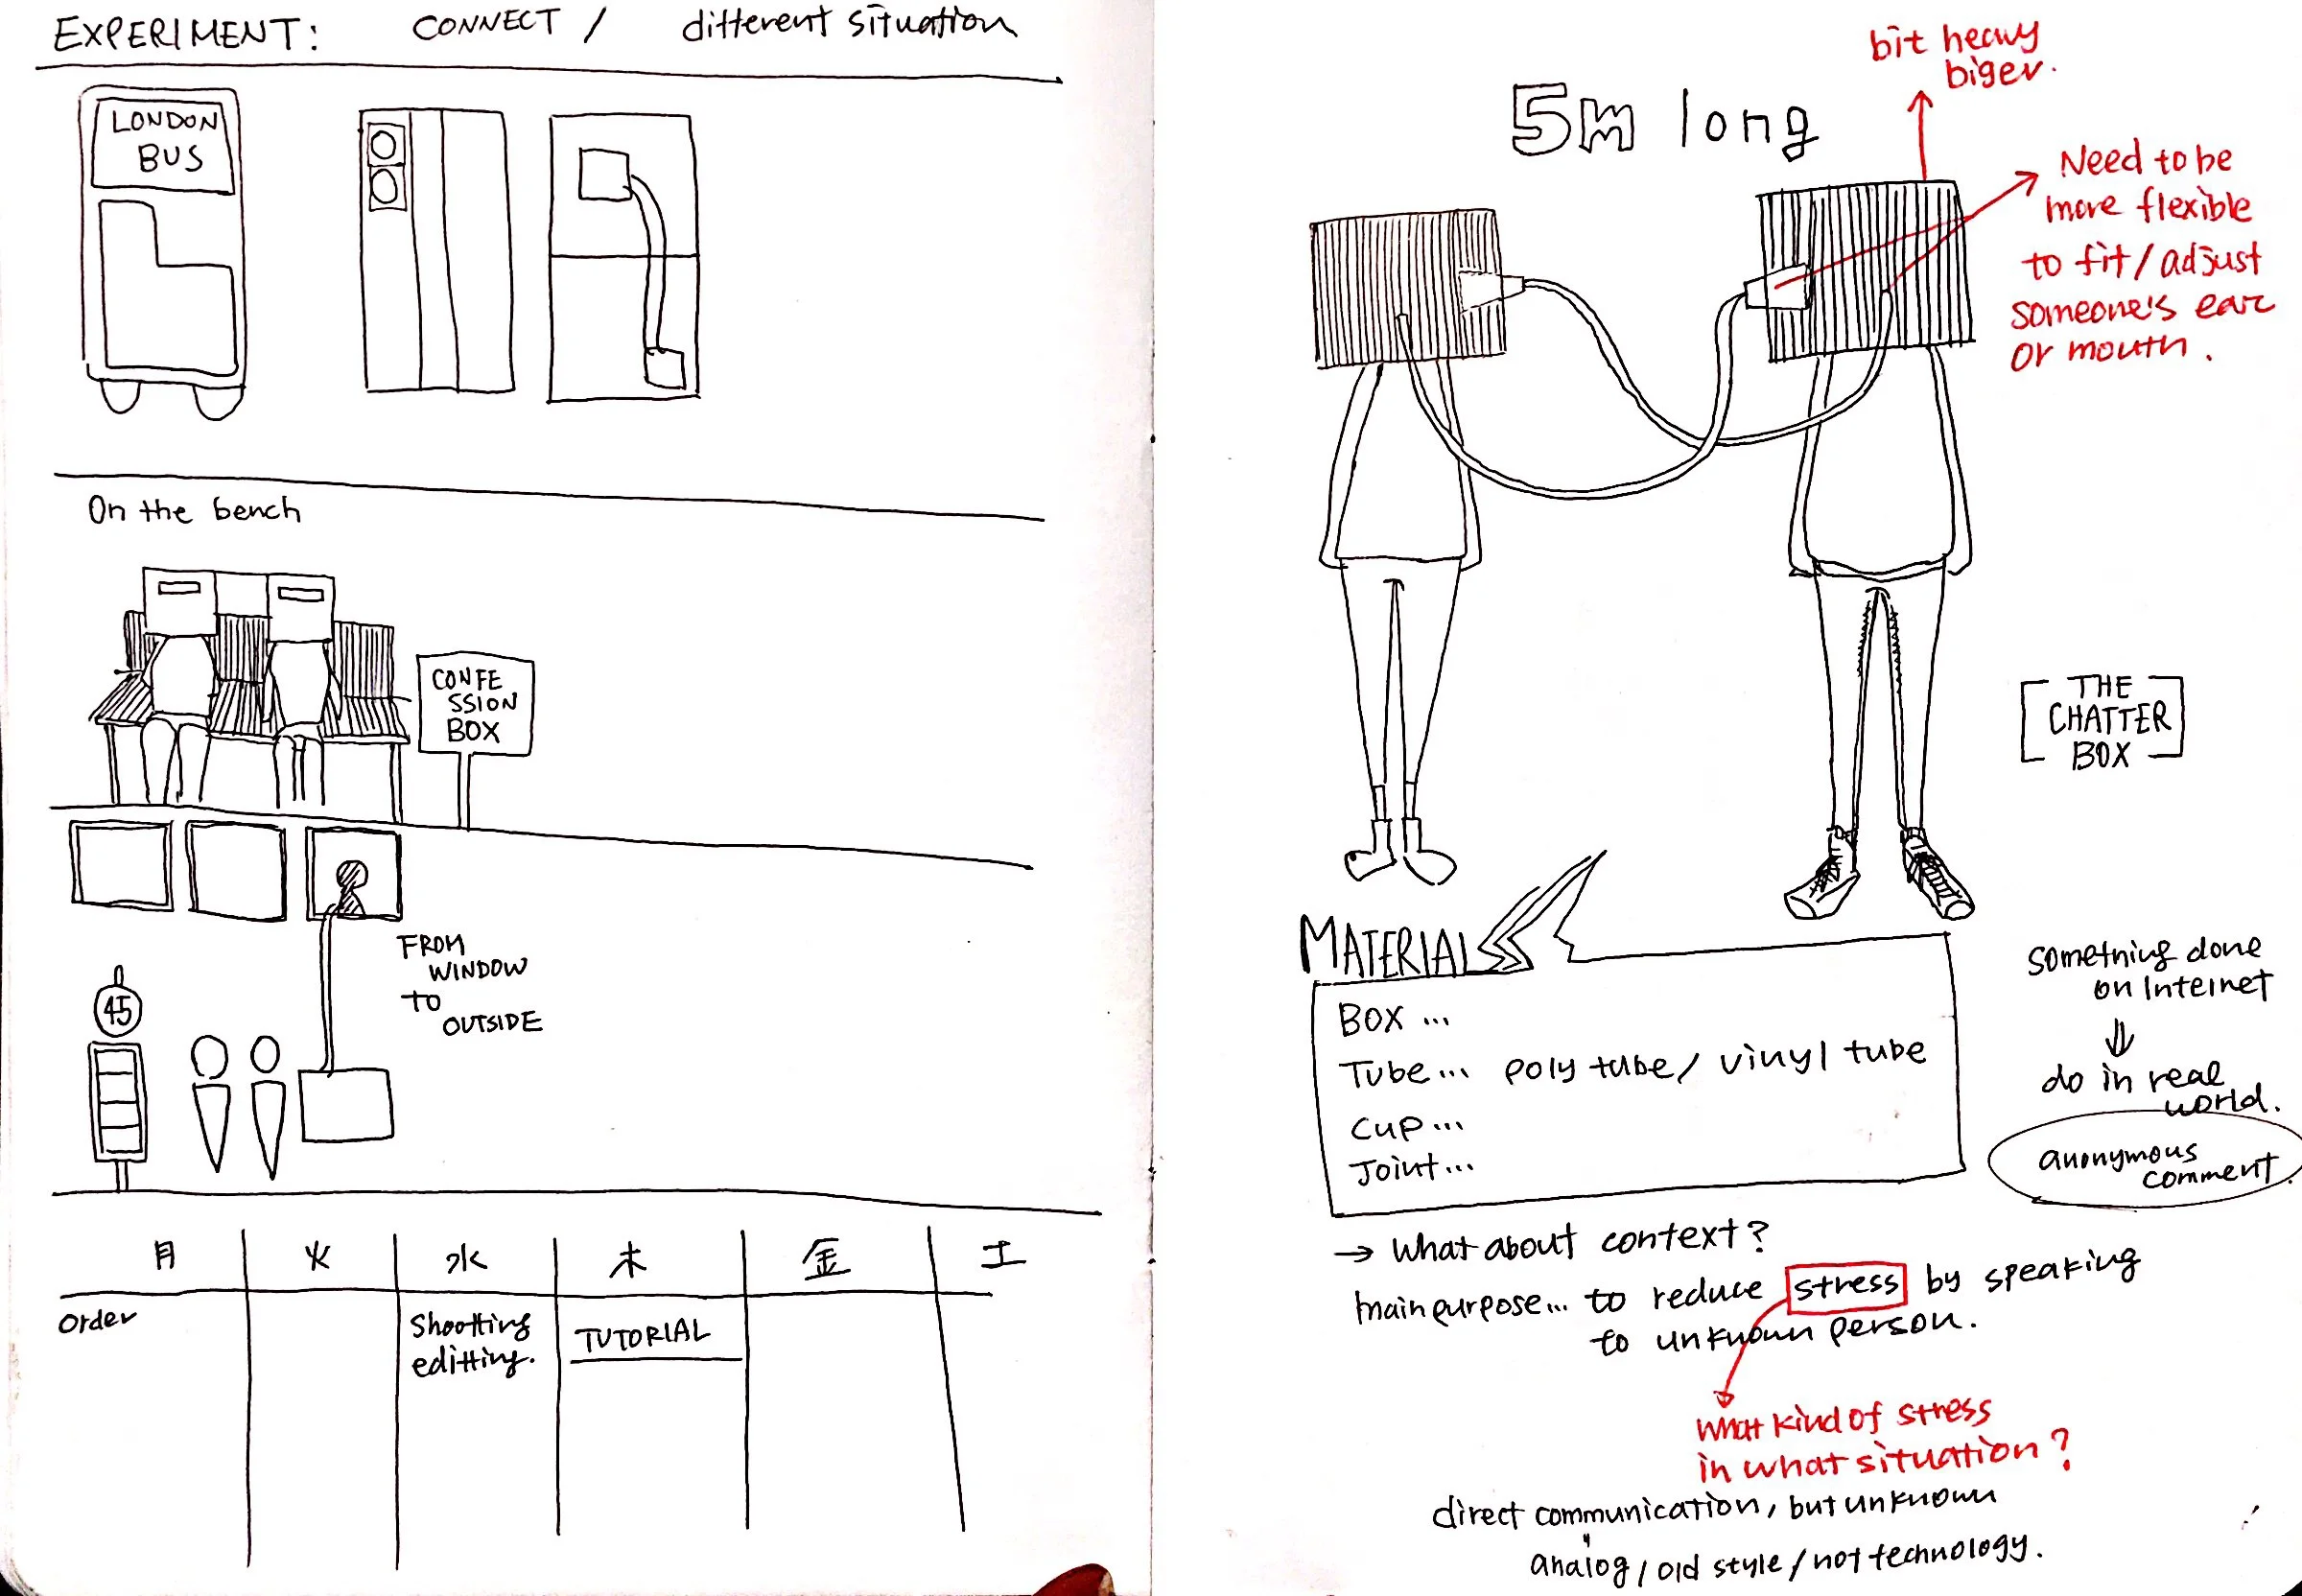 EXPERIMENT: CONNECT / different situation
LONDON
BUS
On the bench
CONFE
SSION
BOX
FROM
WINDOW
TO
OUTSIDE
45
月 火 水 木 金 土
order
Shootting
editting.
TUTORIAL
5m long
bit heavy
biger.
Need to be
more flexible
to fit/adjust
someone's ear
or mouth.
THE
CHATTER
BOX
MATERIAL
BOX ...
Tube... poly tube/ vinyl tube
Cup...
Joint...
something done
on Internet
⇓
do in real
world.
anonymous
comment.
→ What about context?
main purpose... to reduce stress by speaking
to unknown person.
What kind of stress
in what situation?
direct communication, but unknown
analog/old style/not technology.